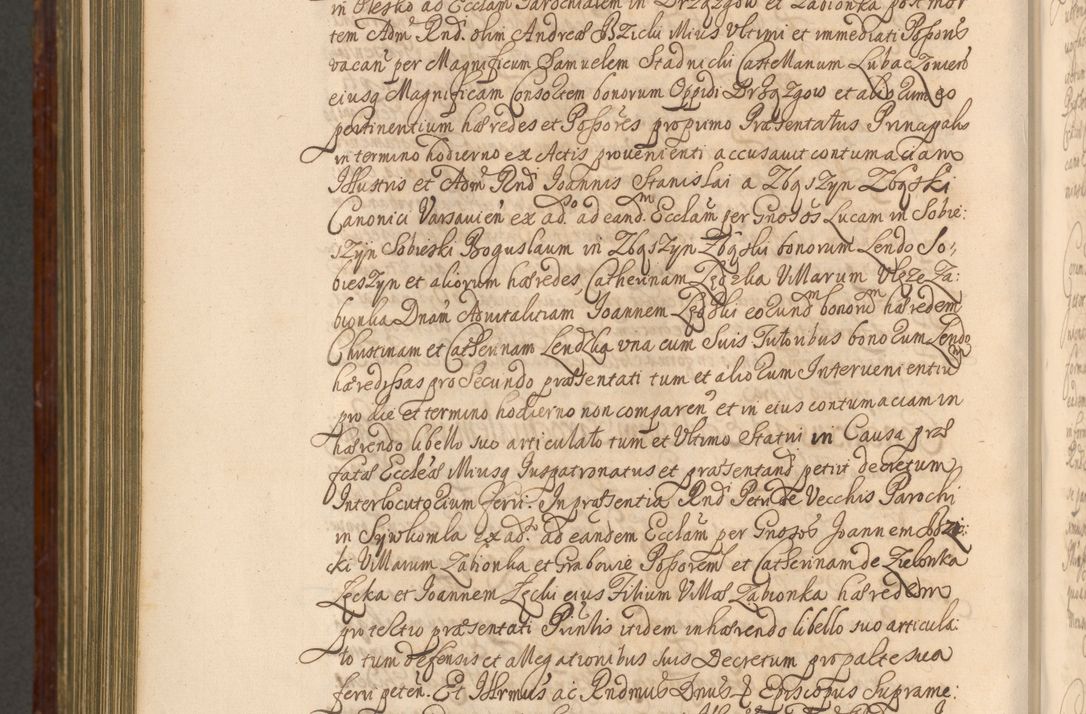 in Plesko ad Ecclam Parochialem in Brzązgow et Zabionka post mor
tem Adm Rnd. olim Andreæ Bzicki illius Vltimi et immediati Possoris
vacan per Magnificum Samuelem Stadnicki Castellanum Lubaczovien
eiusq Magnificam Consortem bonorum Oppidi Brząqzgow et aliorum eo
pertinentium hæredes et Possores pro primo Præsentatus Principalis
in termino hodierno ex Actis provenienti accusauit contumaciam
Illustris et Adm Rnd Joannis Stanislai a Zbąszyn Zbąski
Canonici Varsavien ex adso ad eandm Ecclam per Gnosos Lucam in Sobie:
szyn Sobieski Boguslaum in Zbąszyn Zbąski bonorum Lendo So:
bieszyn et aliorum hæredes, Catherinam Lędzka Villarum Vlęże Za:
bionka Dnam Aduitalitiam Joannem Lędzki eorundm bonorum hæredem
Christinam et Catherinam Lendzka vna cum suis Tutoribus bonorum Lendo
hæredissas pro Secundo præsentati tum et aliorum Intervenientium
pro die et termino hodierno non comparen et in eius contumaciam in
hærendo libello suo articulato tum et Vltimo Statui in Causa præ
fatæ Ecclæ illiusq Juspatronatus et præsentand petiit decretum
Interlocutorium ferri. In præsentia Rnd Petri de Vecchis Parochi
in Sywkomla ex adso ad eandem Ecclam per Gnosos Joannem Bzic:
ki Villarum Zabionka et Grabowie Possorem et Catherinam de Zielonka
Lęcka et Joannem Lęcki eius Filium Villæ Zabionka hæredem
pro tertio præsentati Prinlis itidem inhærendo libello suo articula:
to tum defensis et allegationibus suis Decretum pro parte sua
ferri peten. Et Illrmus ac Rndmus Dnus Episcopus Supra me: